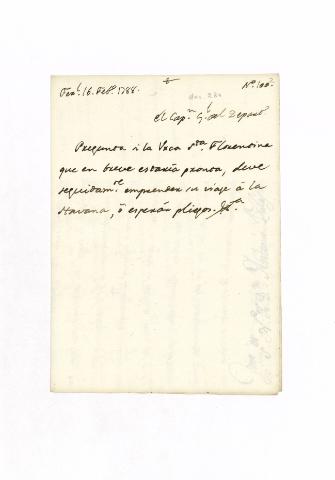 Fer.l 16. Feb.o 1788. Nº 100.
El Cap.n G.l del Depart.o
Pregunta si la Vrca S.ta Florentina
que en breve estaría pronta, deve
seguidam.te emprender su viaje á la
Havana, ó esperár pliegos.